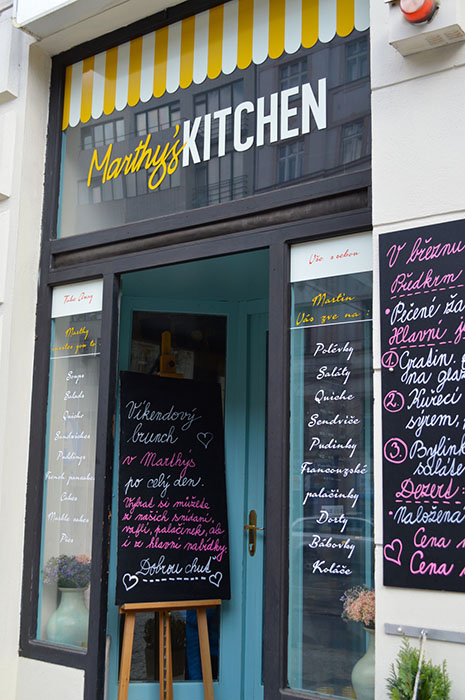 Marthy's KITCHEN
Take Away
Marthy
invites you to:
Soups
Salads
Quiche
Sandwiches
Puddings
French pancakes
Cakes
Marble cakes
Pies
Víkendový
brunch
v Marthys
po celý den.
Vybrat si můžete
z našich snídaní,
vaflí, palačinek, ale
i z hlavní nabídky.
Dobrou chuť
Vše s sebou
Martin
Vás zve na :
Polévky
Saláty
Quiche
Sendviče
Pudinky
Francouzské
palačinky
Dorty
Bábovky
Koláče
V březnu
Předkrm
Pečené ža
Hlavní j
1. Gratin. p
na glaz
2. Kuřecí
sýrem,
3. Bylink
saláte
Dezert:
Naložená
Cena
Cena